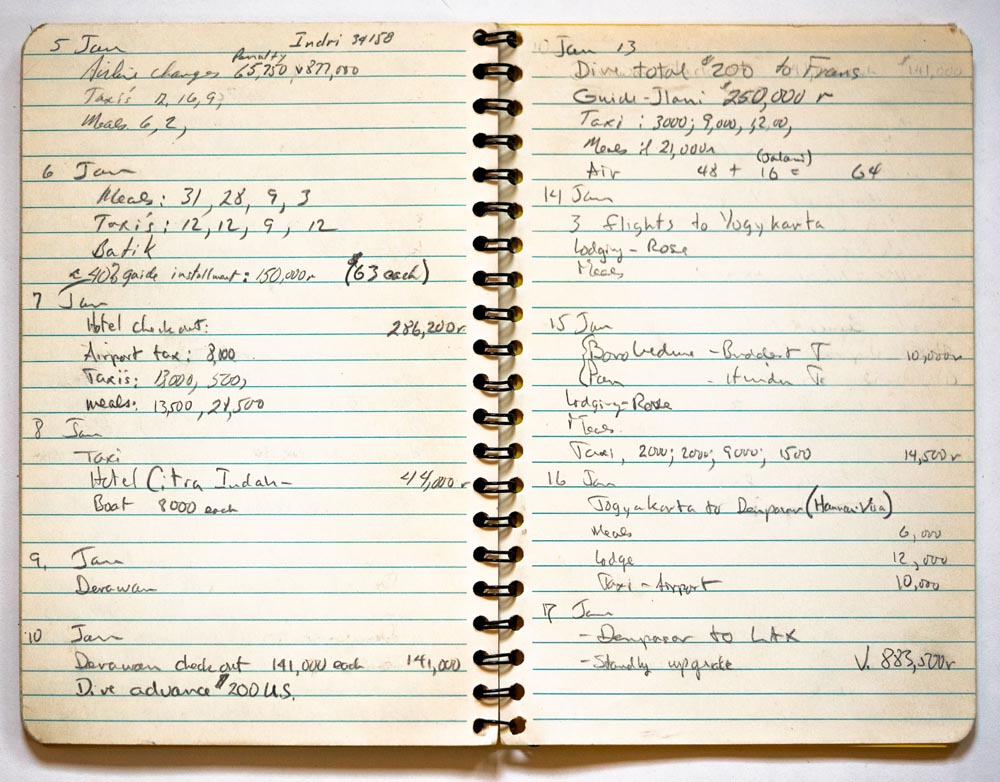 5 Jan Indri 34158
Penalty
Airline changes 65,750 v 877,000
Taxi's 12, 16, 9,
Meals 6, 2,
6 Jan
Meals: 31, 28, 9, 3
Taxi's: 12, 12, 9, 12
Batik
40% guide installment: 150,000r ($63 each)
7 Jan
Hotel checkout: 286,200r
Airport tax: 8,100
Taxi's: 13,000, 500,
meals: 13,500, 24,500
8 Jan
Taxi
Hotel Citra Indah - 44,000 r
Boat 8000 each
9, Jan
Derawan
10 Jan
Derawan check out 141,000 each 141,000
Dive advance $200 U.S.
Jan 13
Dive total $200 to Frans
Guide - Jlani $250,000 r
Taxi: 3000; 9,000, 1,200,
Meals 21,000r
Air 48 + 16 = 64
14 Jan
3 flights to Yogykarta
Lodging - Rose
Meals
15 Jan
- Buddist T 10,000r
- Hindu T
Lodging - Rose
Meals
Taxi, 2000; 2000; 9000; 1500 14,500r
16 Jan
Jogyakarta to Denpasar
Meals 6,000
Lodge 12,000
Taxi - Airport 10,000
17 Jan
- Denpasar to LAX
- Standby upgrade V. 883,500r